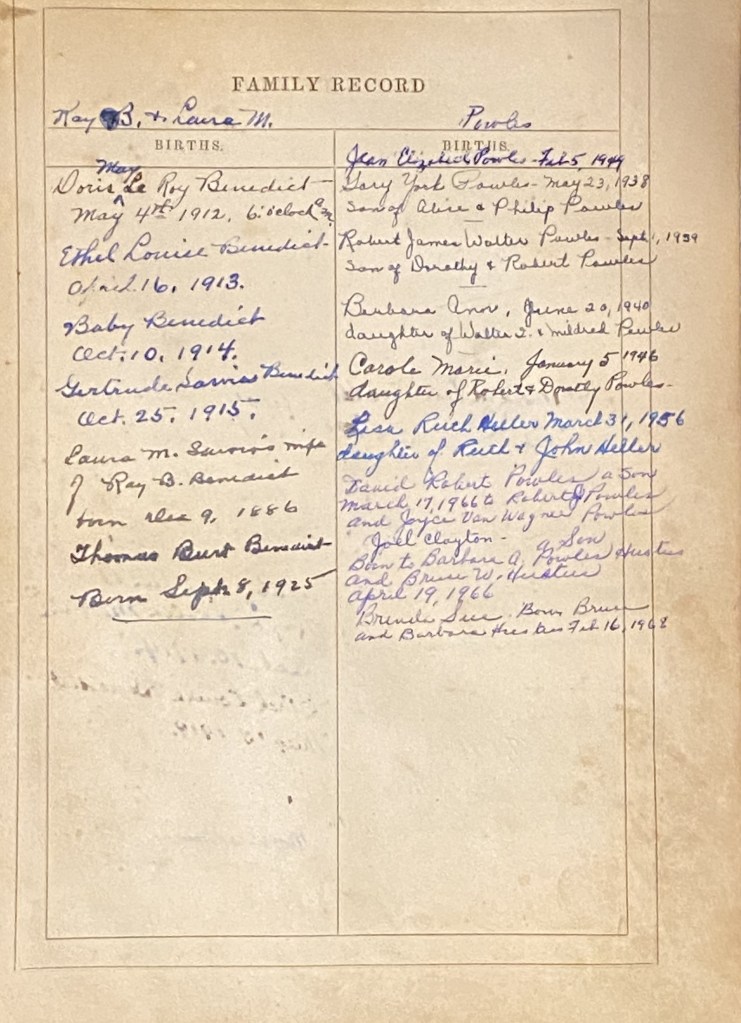 FAMILY RECORD
Ray B. & Laura M.
BIRTHS.
May
Doris Le Roy Benedict
May 4th 1912, 6 o'clock
Ethel Louise Benedict
April 16, 1913.
Baby Benedict
Oct. 10, 1914.
Gertrude Benedict
Oct. 25, 1915.
Laura M. wife
of Ray B. Benedict
born Dec 9, 1886
Thomas Burt Benedict
Born Sept 8, 1925
Powles
BIRTHS.
Jean Elizabeth Powles - Feb 5, 1949
Gary York Powles - May 23, 1938
Son of Alice & Philip Powles
Robert James Walter Powles - Sept 1, 1939
Son of Dorothy & Robert Powles
Barbara Ann, June 20, 1940
daughter of Walter & Mildred Powles
Carole Marie, January 5 1946
daughter of Robert & Dorothy Powles -
Lisa Ruth Heller March 31, 1956
daughter of Ruth & John Heller
David Robert Powles a Son
March 17, 1966 to Robert J Powles
and Joyce Van Wagner Powles
Joel Clayton - a Son
Born to Barbara A. Powles Hustis
and Bruce W. Hustis
April 19, 1966
Brenda Sue Born Bruce
and Barbara Hustis Feb 16, 1968